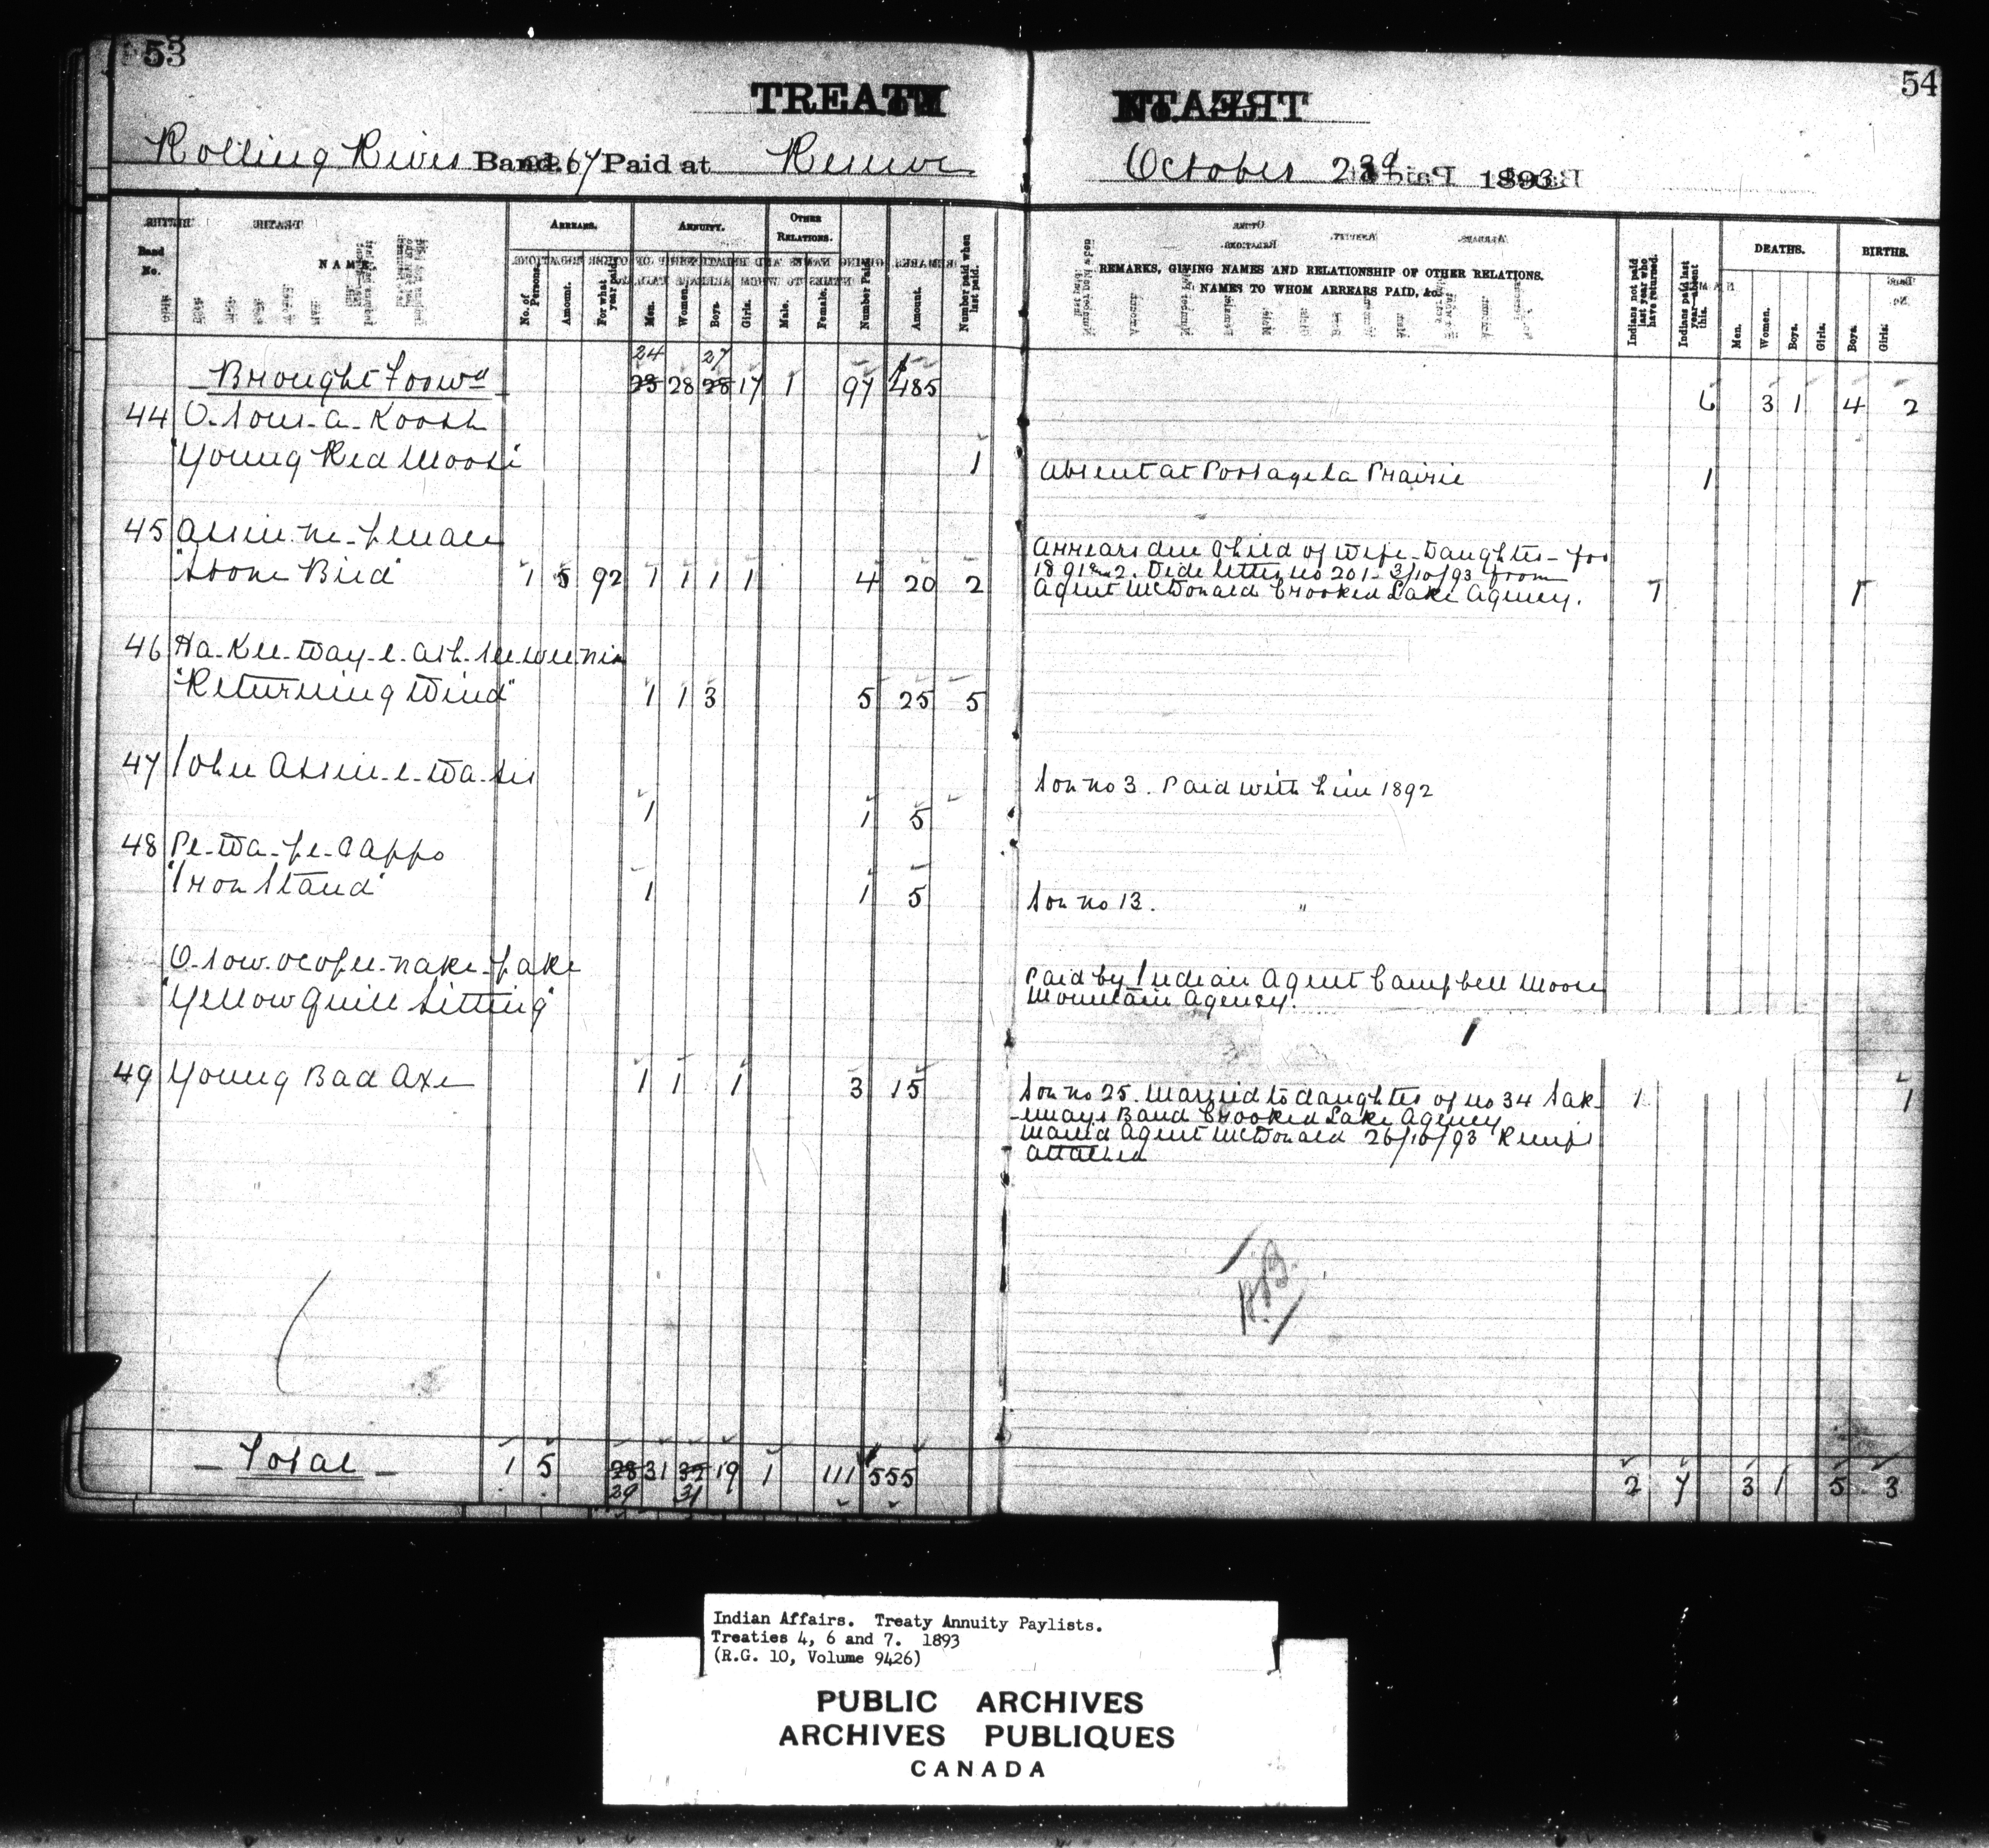 53
TREATY
Rolling River Band. 67 Paid at Reserve
Band No.
NAME.
ARREARS.
No. of Persons.
Amount.
For what year paid.
ANNUITY.
Men.
Women.
Boys.
Girls.
OTHER RELATIONS.
Male.
Female.
Number Paid.
Amount.
Number paid when last paid.
Brought Forwd 24 23 28 27 28 17 1 97 $485
44 O. sow. a. Koosh
"Young Red Moose" 1
45 Assin. ne. pewace
"Stone Bird" 1 5 92 1 1 1 1 4 20 2
46 Ka-Kee-Way-e-ash-see-wee-nin
"Returning Wind" 1 1 3 5 25 5
47 John Assin-e-Wa-sis
1 1 5
48 Pe-Wa-pe-Cappo
"Iron Stand" 1 1 5
O-sow-ocopee-nake-pake
"Yellow Quill Sitting"
49 Young Bad Axe 1 1 1 3 15
Total 1 5 28 31 32 19 1 111 555
29 31
54
October 23d 1893
REMARKS, GIVING NAMES AND RELATIONSHIP OF OTHER RELATIONS.
NAMES TO WHOM ARREARS PAID, &c.
Indians not paid last year who have returned.
Indians paid last year—absent this.
DEATHS.
Men.
Women.
Boys.
Girls.
BIRTHS.
Boys.
Girls.
6 3 1 4 2
Absent at Portage la Prairie 1
Arrears due Child of Wife-Daughter- for
1891 & 2. Vide letter no 201- 3/10/93 from
Agent McDonald Crooked Lake Agency. 1 1
Son no 3. Paid with him 1892
Son no 13. "
Paid by Indian Agent Campbell Moose
Mountain Agency.
1
Son no 25. Married to daughter of no 34 Sak-
-imays Band Crooked Lake Agency 1 1
Agent McDonald 26/10/93
attached
2 7 3 1 5 3
Indian Affairs. Treaty Annuity Paylists.
Treaties 4, 6 and 7. 1893
(R.G. 10, Volume 9426)
PUBLIC ARCHIVES
ARCHIVES PUBLIQUES
CANADA